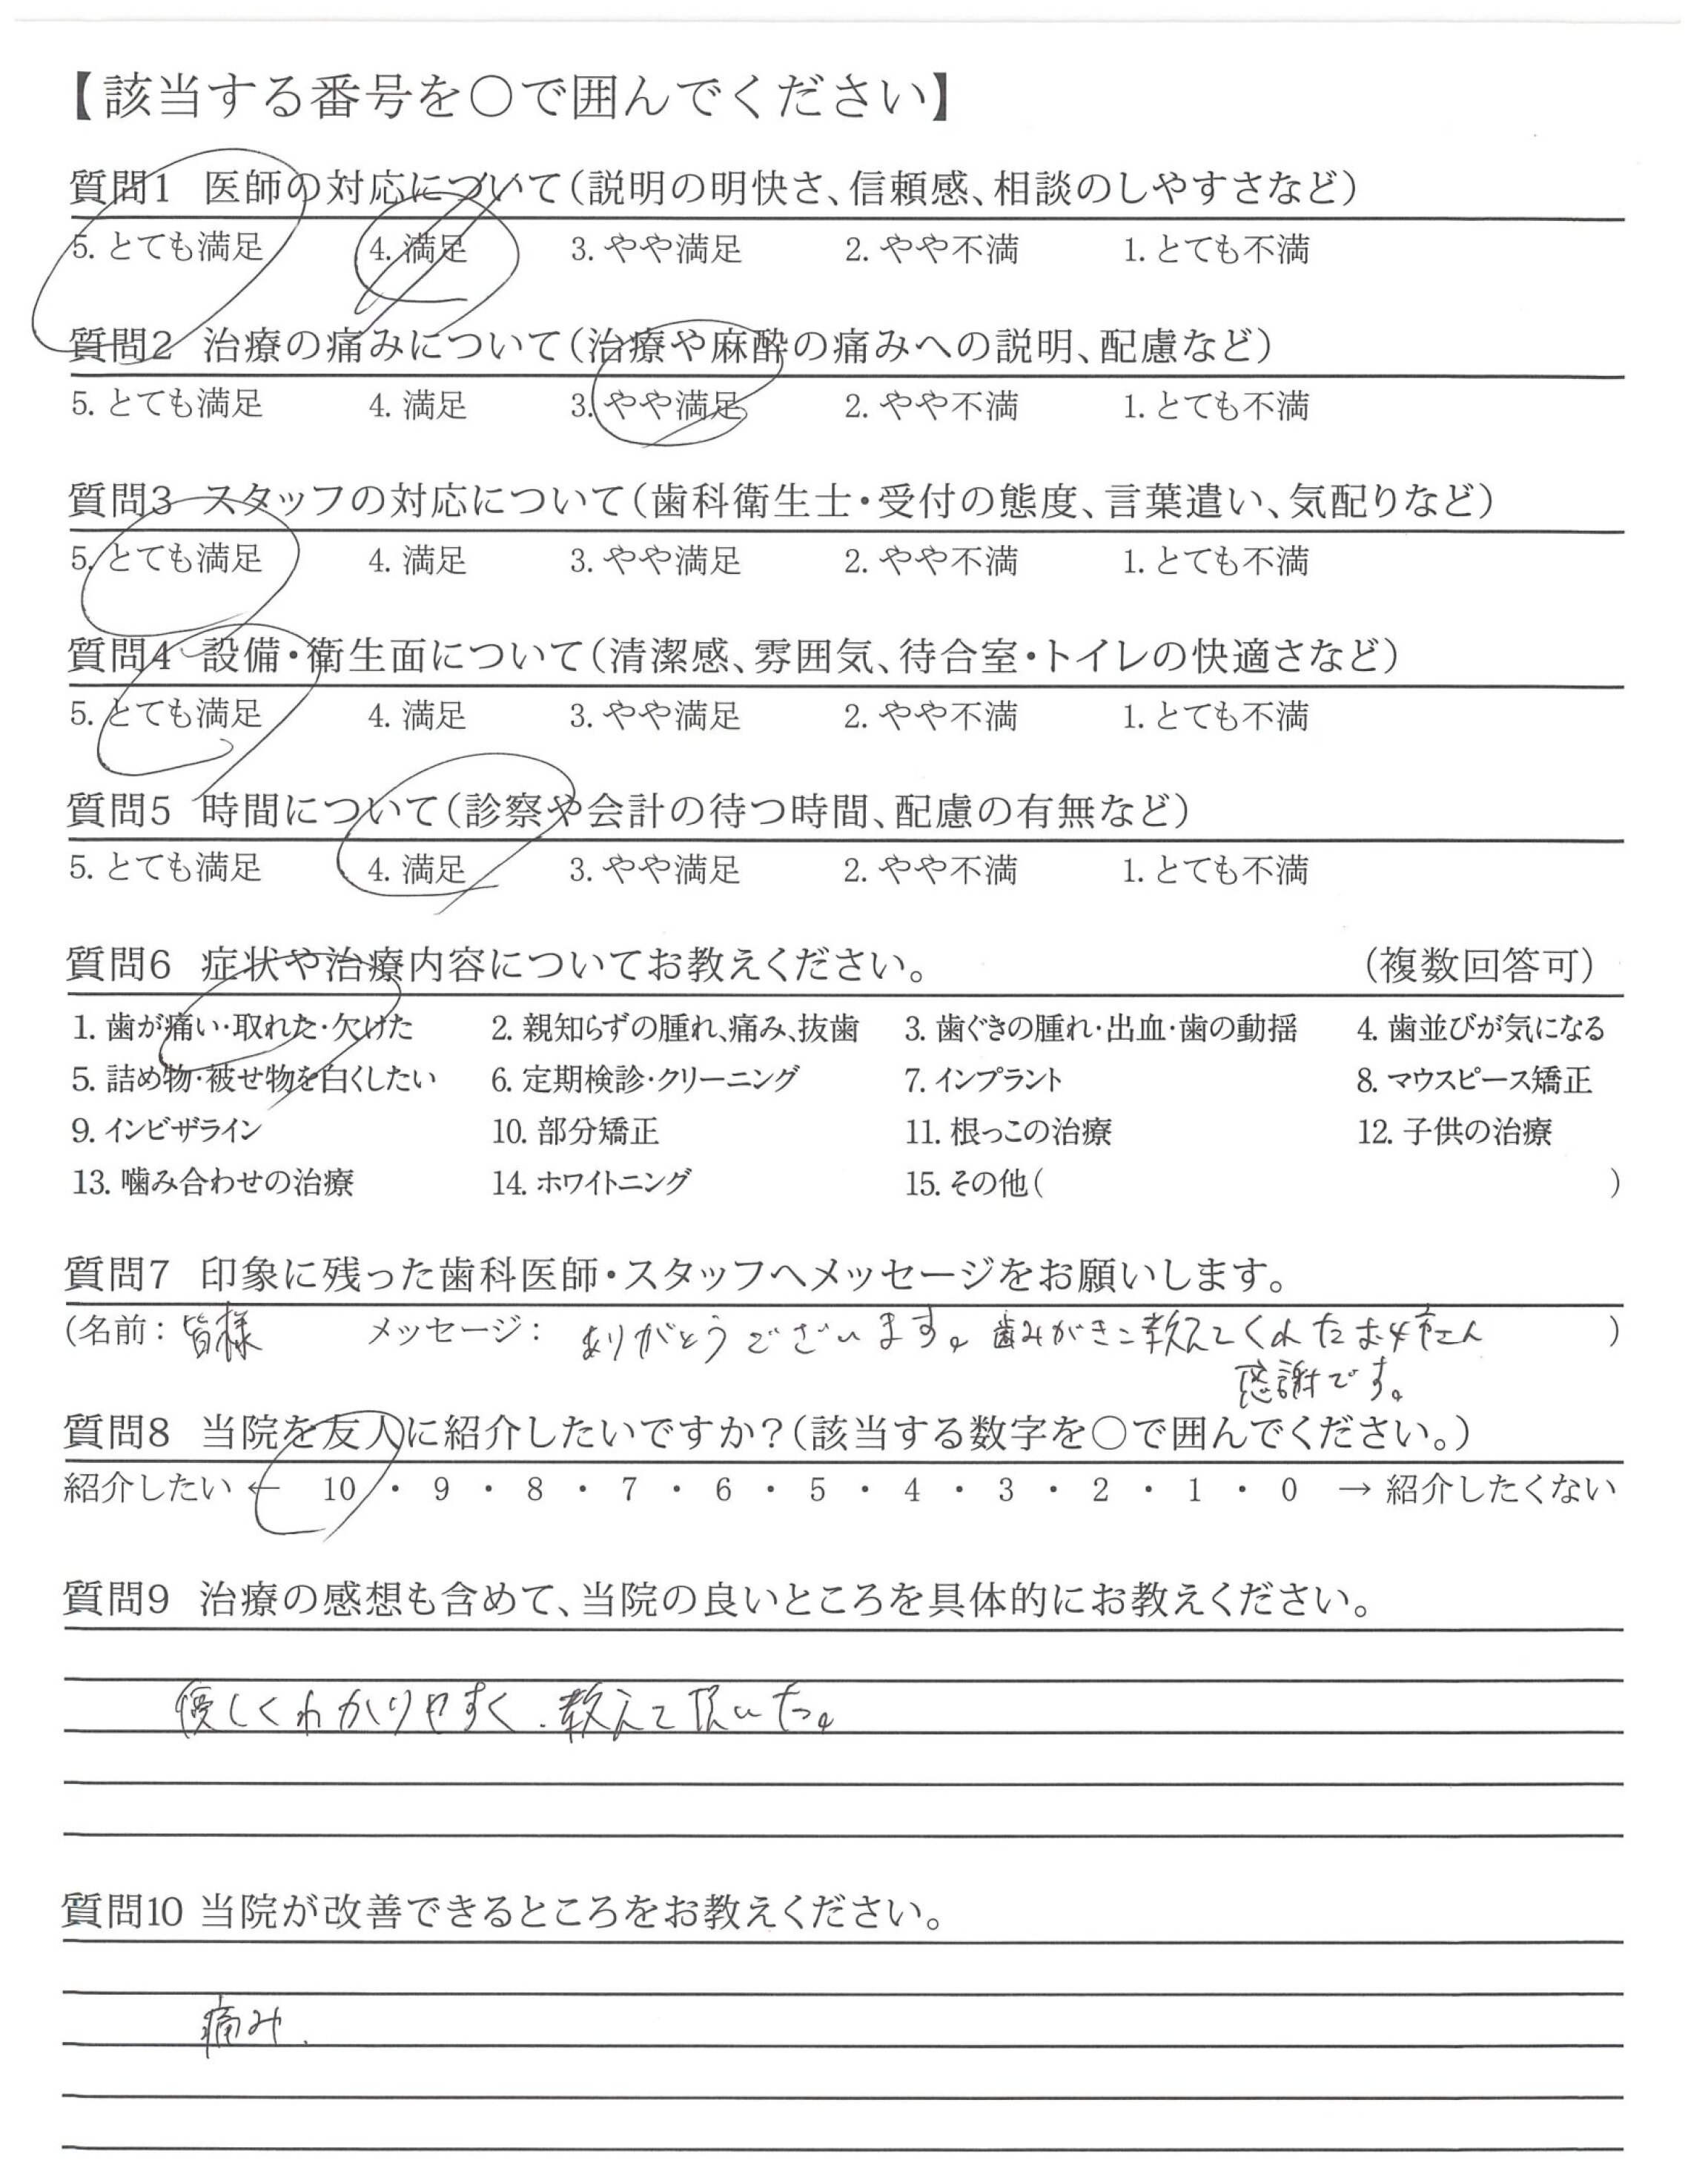 【該当する番号を○で囲んでください】
質問1 医師の対応について(説明の明快さ、信頼感、相談のしやすさなど)
5. とても満足 4. 満足 3. やや満足 2. やや不満 1. とても不満
質問2 治療の痛みについて(治療や麻酔の痛みへの説明、配慮など)
5. とても満足 4. 満足 3. やや満足 2. やや不満 1. とても不満
質問3 スタッフの対応について(歯科衛生士・受付の態度、言葉遣い、気配りなど)
5. とても満足 4. 満足 3. やや満足 2. やや不満 1. とても不満
質問4 設備・衛生面について(清潔感、雰囲気、待合室・トイレの快適さなど)
5. とても満足 4. 満足 3. やや満足 2. やや不満 1. とても不満
質問5 時間について(診察や会計の待つ時間、配慮の有無など)
5. とても満足 4. 満足 3. やや満足 2. やや不満 1. とても不満
質問6 症状や治療内容についてお教えください。 (複数回答可)
1. 歯が痛い・取れた・欠けた 2. 親知らずの腫れ、痛み、抜歯 3. 歯ぐきの腫れ・出血・歯の動揺 4. 歯並びが気になる
5. 詰め物・被せ物を白くしたい 6. 定期検診・クリーニング 7. インプラント 8. マウスピース矯正
9. インビザライン 10. 部分矯正 11. 根っこの治療 12. 子供の治療
13. 噛み合わせの治療 14. ホワイトニング 15. その他( )
質問7 印象に残った歯科医師・スタッフへメッセージをお願いします。
(名前: 皆様 メッセージ: ありがとうございます。歯みがき 教えてくれた )
感謝です。
質問8 当院を友人に紹介したいですか?(該当する数字を○で囲んでください。)
紹介したい ← 10 ・ 9 ・ 8 ・ 7 ・ 6 ・ 5 ・ 4 ・ 3 ・ 2 ・ 1 ・ 0 → 紹介したくない
質問9 治療の感想も含めて、当院の良いところを具体的にお教えください。
優しくわかりやすく、教えて頂いた。
質問10 当院が改善できるところをお教えください。
痛み.